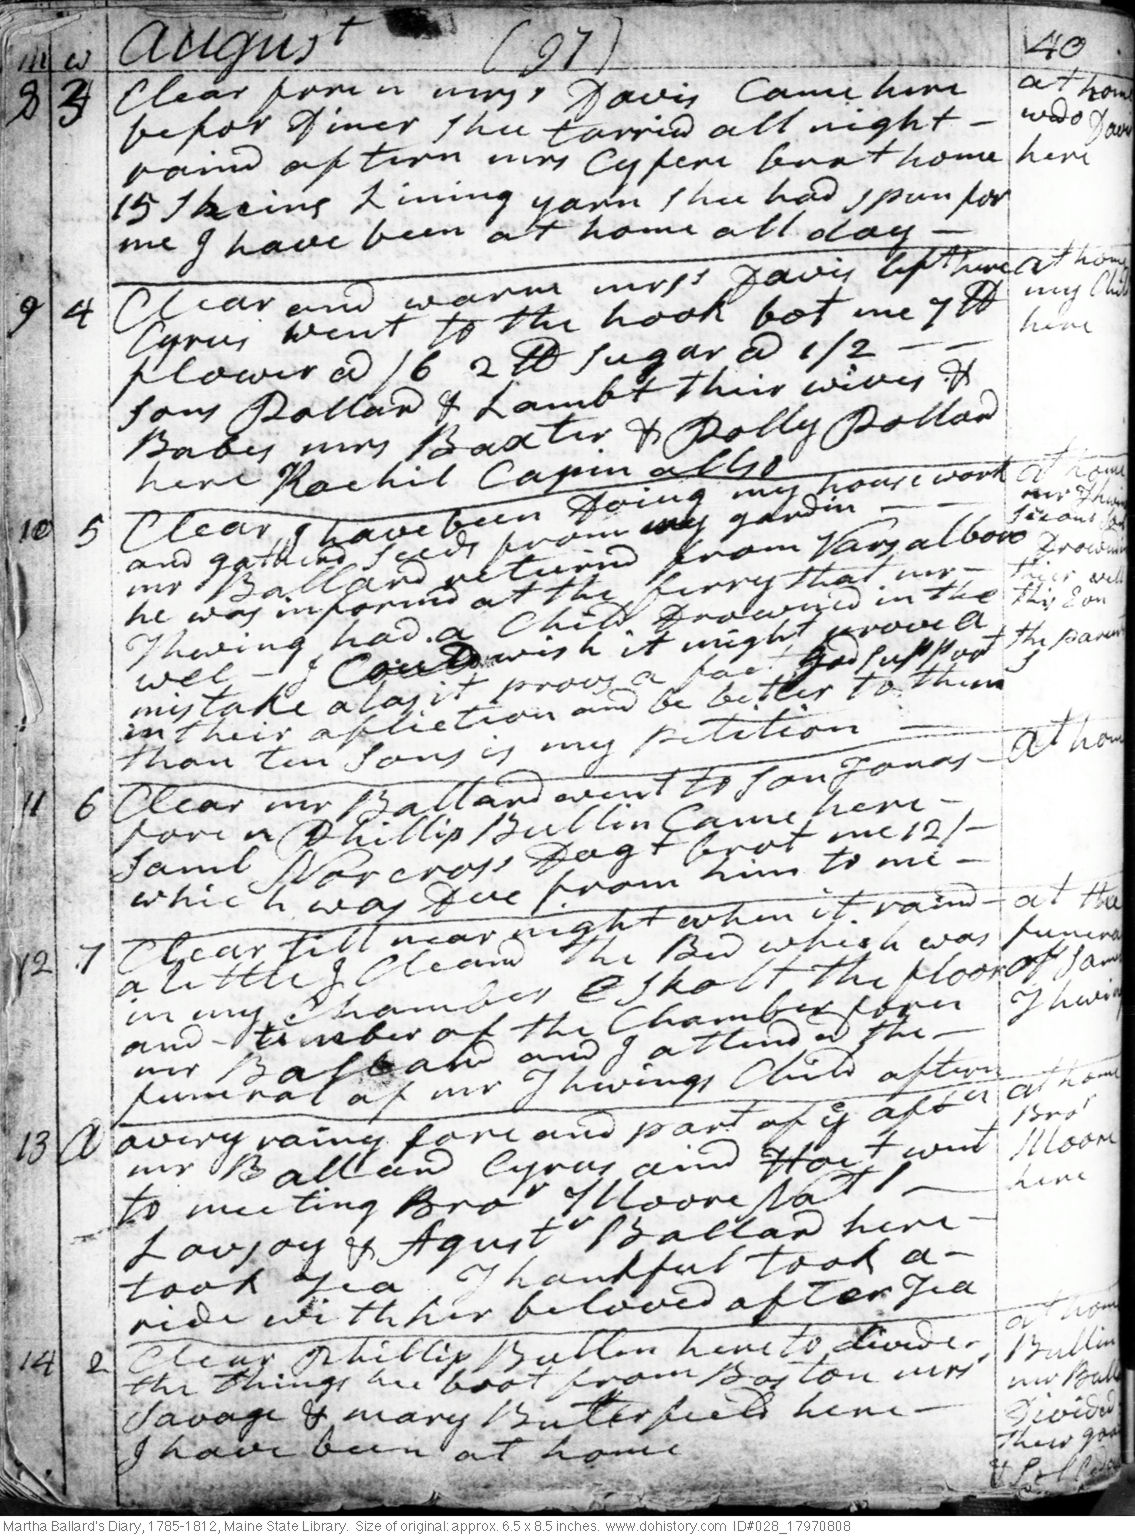 m w August (97) 40
8 3 Clear foren mrss Davis Came here at home
befor Diner shee tarried all night - wido Davis
raind aftern mrs Cypere brot home here
15 Skeins Lining yarn shee had spun for
me I have been at home all day -
9 4 Clear and warm mrss Davis left here at home
Cyrus went to the hook bot me 7 lb my Child
flower @ /6 2 lb Sugar @ 1/2 - - here
Sons Pollard & Lambt their wives &
Babes mrs Baxter & Dolly Pollard
here Rachil Capin allso
10 5 Clear I have been Doing my house work at home
and gatherd seeds from my gardin - - mr Thwing
mr Ballard returnd from Varsalboro
he was informd at the ferry that mr - Drownd
Thwing had a Child Drownd in the
well - I Could wish it might prove a the parents
mistake alas it provs a fact God support
in their afliction and be better to them
than ten Sons is my petition -
11 6 Clear mr Ballard went to son Jonas - at home
foren Phillip Bullin Came here -
Saml Norcross Dagt brot me 12/-
which was Due from him to me -
12 7 Clear till near night when it raind - at the
a little I Cleand the Bed which was funeral
in my Chamber & skalt the floor of Saml
and timber of the Chamber foren Thwing
mr Ballard and I attended the -
funeral of mr Thwings Child aftern
13 A a very rainy fore and part of ye aftn at home
mr Ballard Cyrus aind went Bror
to meeting Bror Moore Natl - Moore
Lovjoy & Agustr Ballard here - here
took Tea Thankful took a -
ride with her beloved after Tea
14 2 Clear Phillip Bullen here to divide at home
the things hee brot from Boston mrs Bullin
Savage & mary Butterfield here - mr Bullin
I have been at home Divided
their goods
Martha Ballard's Diary, 1785-1812, Maine State Library. Size of original: approx. 6.5 x 8.5 inches. www.dohistory.com ID#028_17970808